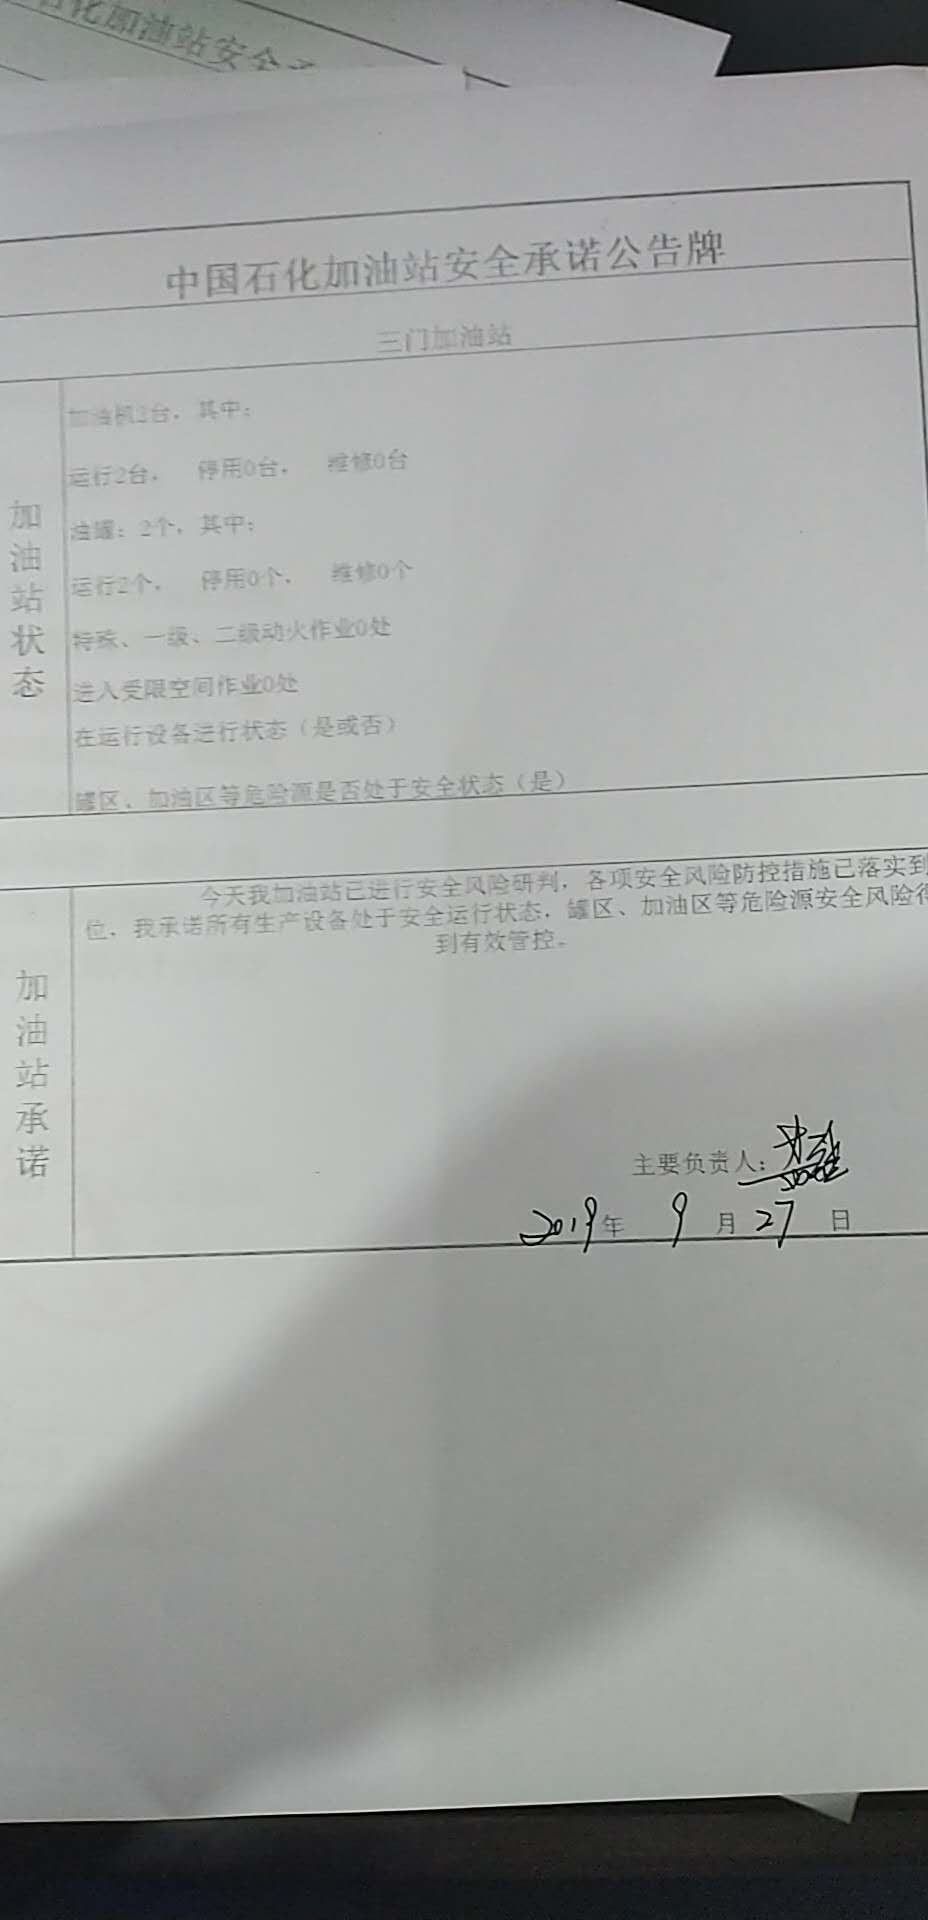 石化加油站安全
中国石化加油站安全承诺公告牌
三门加油站
加油站状态
加油机2台，其中：
运行2台， 停用0台， 维修0台
油罐：2个，其中：
运行2个， 停用0个， 维修0个
特殊、一级、二级动火作业0处
进入受限空间作业0处
在运行设备进行状态（是或否）
罐区、加油区等危险源是否处于安全状态（是）
加油站承诺
今天我加油站已进行安全风险研判，各项安全风险防控措施已落实到
位，我承诺所有生产设备处于安全运行状态，罐区、加油区等危险源安全风险得
到有效管控。
主要负责人：
2019年 9月27日